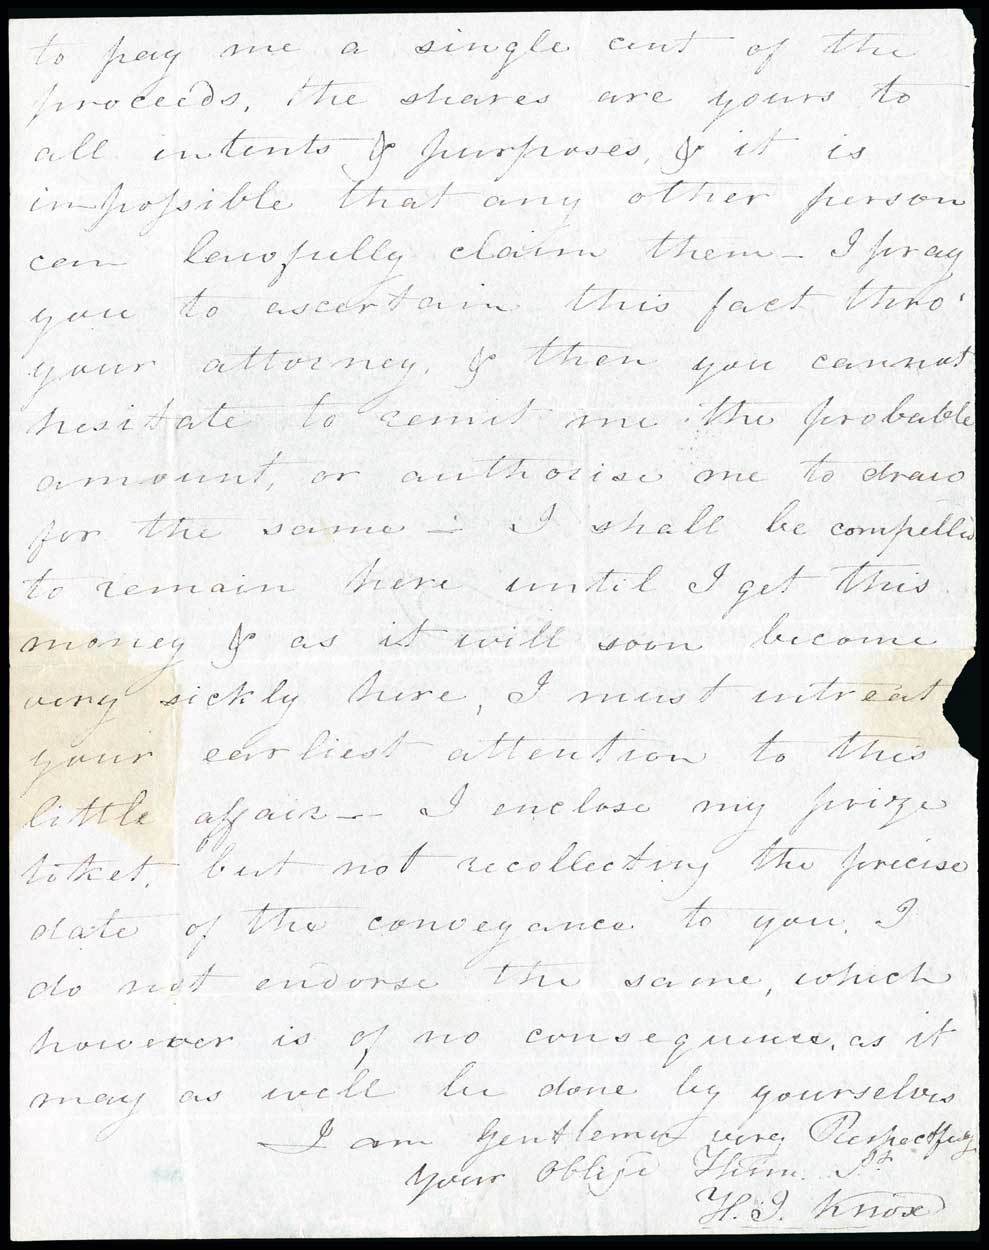 to pay me a single cent of the
proceeds, the shares are yours to
all intents & purposes, & it is
impossible that any other person
can lawfully claim them – I pray
you to ascertain this fact thro'
your attorney, & then you cannot
hesitate to remit me the probable
amount, or authorise me to draw
for the same – I shall be compelled
to remain here until I get this
money & as it will soon become
very sickly here, I must intreat
your earliest attention to this
little affair – I enclose my prize
ticket, but not recollecting the precise
date of the conveyance to you, I
do not endorse the same, which
however is of no consequence, as it
may as well be done by yourselves
I am Gentlemen very Respectfully
your Oblige
H. J. Knox